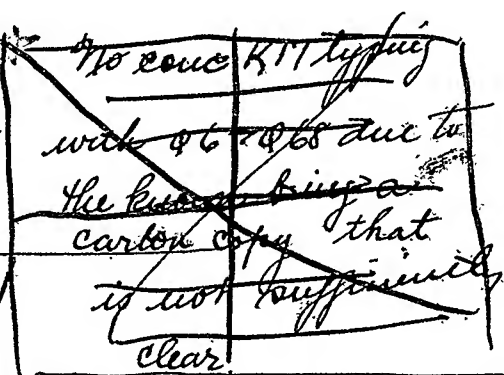 No conc K11 typing
with Q6 - Q68 due to
the known being a
carbon copy that
is not sufficiently
clear